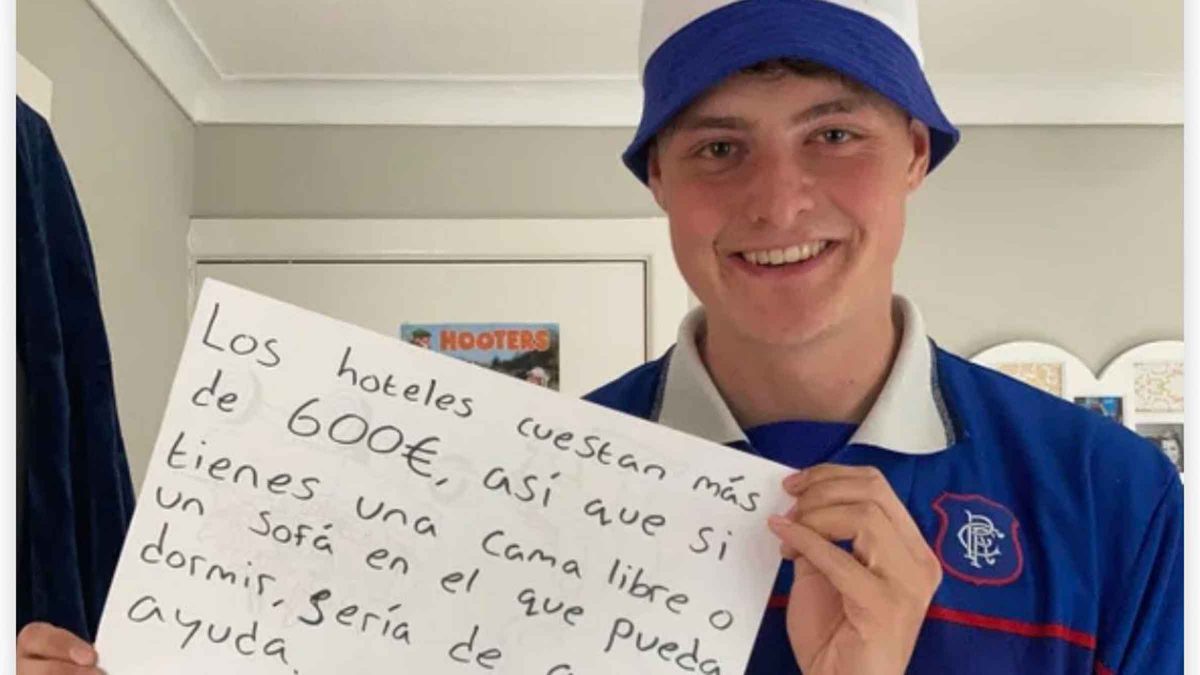 Los hoteles cuestan más
de 600€, así que si
tienes una cama libre o
un sofá en el que pueda
dormir, sería de
ayuda.
HOOTERS
RFC